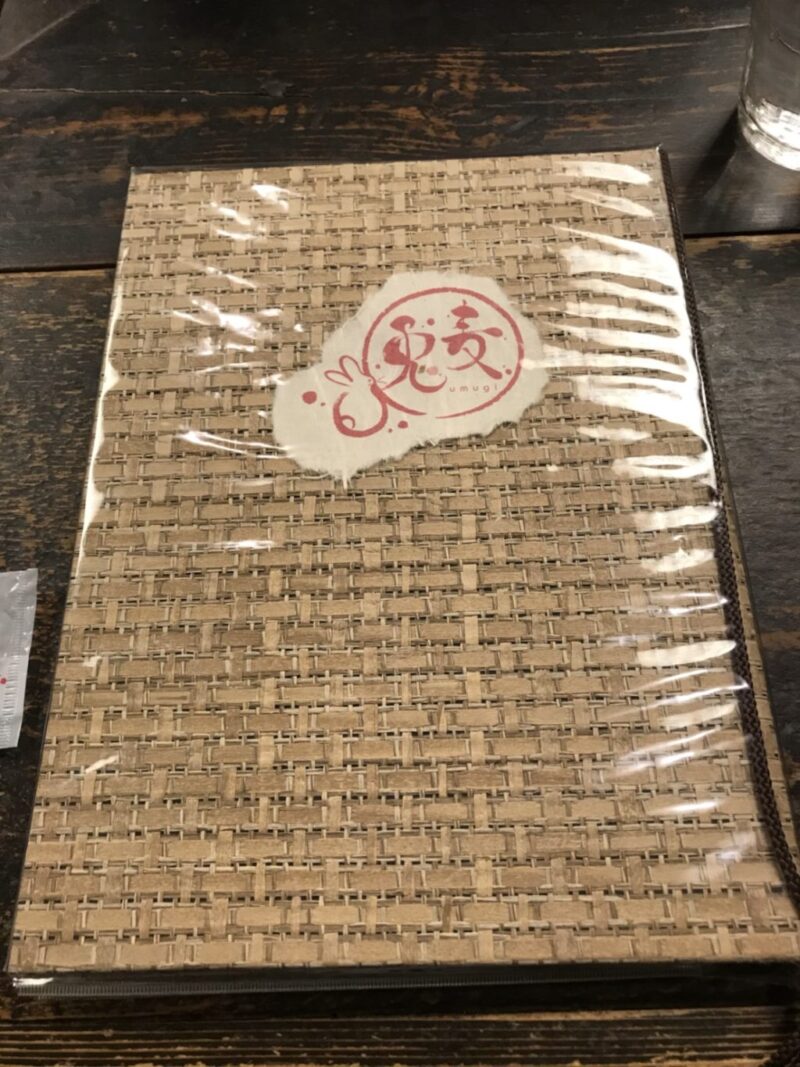 兎麦
umugi